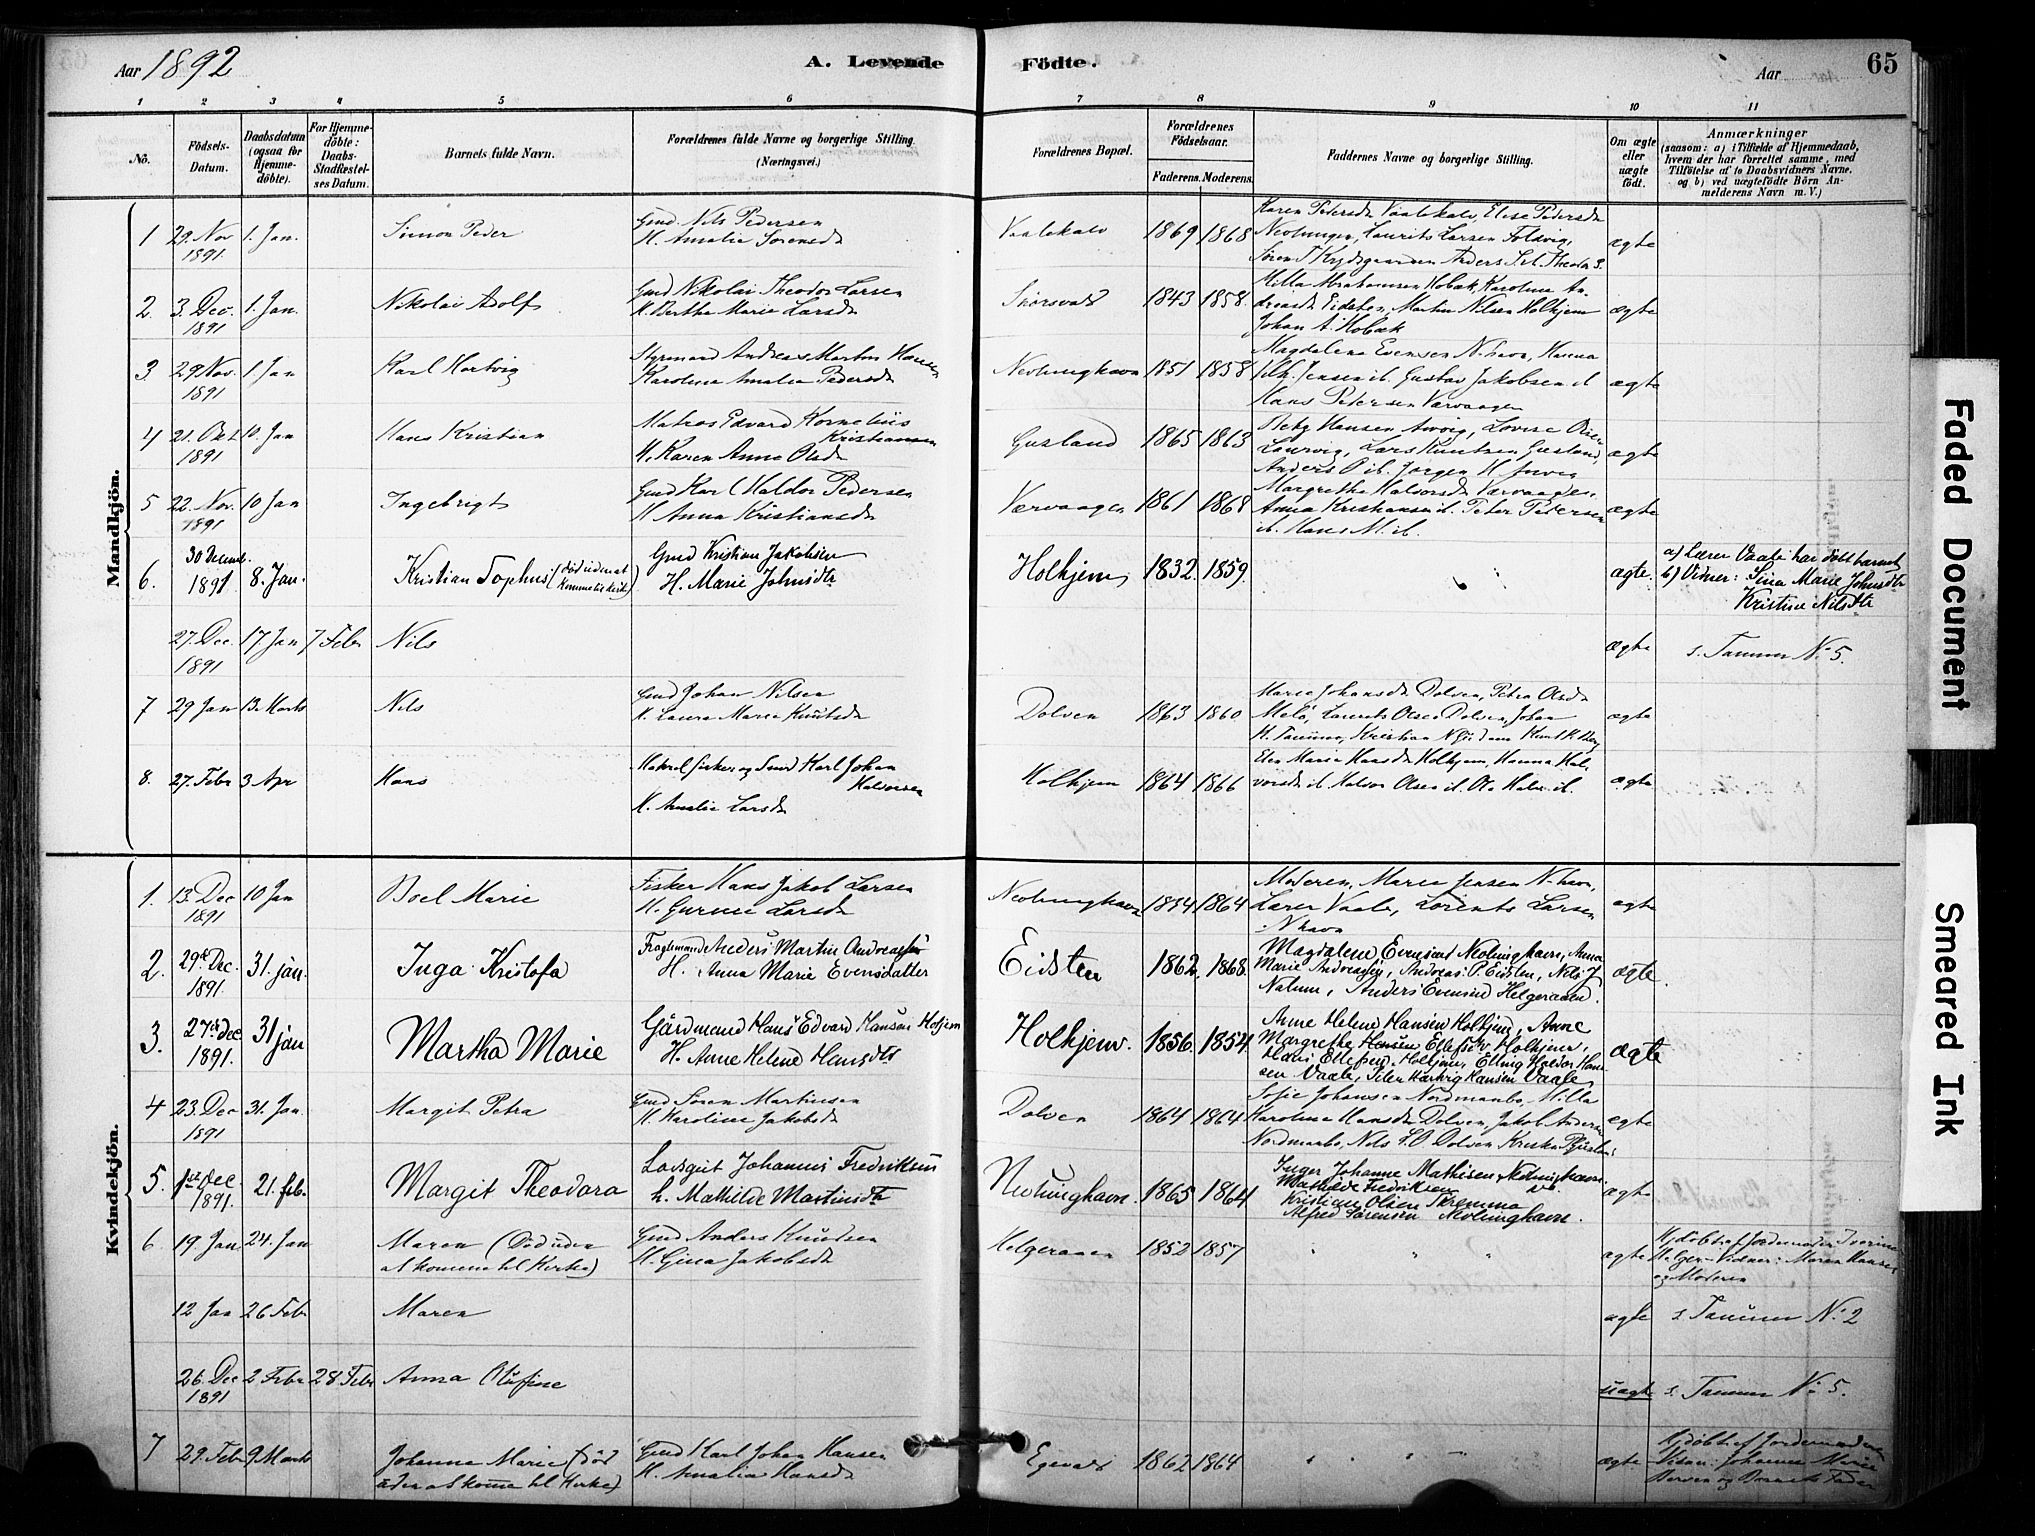 Aar 1892
A. Levende Födte.
Aar
65
1 2 3 4 5 6 7 8 9 10 11
No.
Födsels-Datum.
Daabsdatum (ogsaa for Hjemme-döbte).
For Hjemme-döbte: Daabs-Stadfæstel-ses Datum.
Barnets fulde Navn.
Forældrenes fulde Navne og borgerlige Stilling. (Næringsvei.)
Forældrenes Bopæl.
Forældrenes Födselsaar.
Faderens. Moderens.
Faddernes Navne og borgerlige Stilling.
Om ægte eller uægte födt.
Anmærkninger
(saasom: a) i Tilfælde af Hjemmedaab, hvem der har forrettet samme, med Tilföielse af to Daabsvidners Navne, og b) ved uægtefödte Börn Anmelderens Navn m. V.)
Mandkjön.
1 29. Nov 1891. 1. Jan. Simon Peder
Gmd. Nils Pedersen
H. Amalie Sorensdr
Vaalekalv 1869 1868
Karen Pedersdr Vaalekalv, Elise Pedersdr
Nevlungen, Laurits Larsen Foldvig,
ægte
2. 3. Dec. 1891 1. Jan. Nikolai Adolf
Gmd Nikolai Theodor Larsen
H. Berthe Marie Larsdr
1843 1858.
Milla Abrahamsen Kobæk, Karoline An-
dreasdr Eidsten, Martin Nilsen Holkjem
Johan A. Kobæk
ægte
3. 29 Nov. 1891 1. Jan Karl Hartvig
Styrmand Andreas Martin Hansen
Karoline Amalie Pedersdr
Nevlunghavn 1851 1858
Magdalena Evensen N-havn, Hanna
Jensen ib. Gustav Jakobsen ib
Hans Pedersen Værvaagen
ægte
4 21. Okt 1891 10. Jan Hans Kristian
Matros Edvard Kornelius
Kristiansen
H. Karen Anne Olsdr
Gusland 1865 1863
Hansen
Laurvig, Lars Knutsen Gusland,
ægte
5 22. Nov. 1891 10 Jan Ingebrigt
Gmd Karl Haldor Pedersen
H Anna Kristiansdr
Værvaagen 1861 1868
Margrethe Halvorsdr Værvaagen,
Anna Kristiansen ib. Peter Pedersen
ib. Hans M. ib.
ægte
6. 30 Decemb. 1891 8. Jan. Kristian Sophus (død uden at komme til Kirke)
Gmd Kristian Jakobsen
H. Marie Johnsdtr
Holkjem 1832. 1859.
ægte.
a) Lærer Vaale har døbt barnet
b) Vidner: Sina Marie Johnsdtr
Kristine Nilsdtr
27. Dec. 1891 17. Jan 7 Febr Nils
ægte s. Tanum No 5.
7 29 Jan 13. Marts Nils
Gmd Johan Nilsen
H. Laura Marie Knutsdr
Dolven 1863 1860
Marie Johansdr Dolven, Petra Olsdr
Melø, Laurits Olsen Dolven, Johan
ægte
8. 27. Febr 3 Apr Hans
Karl Johan
Halvorsen
H. Amalie Larsdr
Holkjem 1864 1866
Elen Marie Hansdr Holkjem, Hanna Hal-
vorsdr ib. Halvor Olsen ib.
ægte
Kvindekjön.
1. 13. Dec 1891 10 Jan Boel Marie
Fisker Hans Jakob Larsen
H. Gurine Larsdr
Nevlunghavn 1854 1864
Moderen, Maren Jensen N-havn,
Lærer Vaale, Lorents Larsen
N havn
ægte
2. 29de Dec. 1891. 31. jan. Inga Kristofa
Anders Martin Andreassen
H. Anna Marie Evensdatter
Eidsten 1862. 1868.
Magdalene Evensen Nevlunghavn, Anna
Marie Andreassen, Andreas P. Eidsten, Nils J.
Nalum, Anders Evensen Helgeraaen.
ægte.
3. 27de dec. 1891. 31 jan Martha Marie
Gårdmand Hans Edvard Hansen Holjem
H. Anne Helene Hansdtr
Holkjem. 1856. 1854.
Anne Helene Hansen Holkjem, Anne
Margrethe Hansen Ellefsdtr Holkjem,
Hans Ellefsen Holkjem, Elling Haldor Han-
sen Vaale, Peter Hartvig Hansen Vaale
ægte
4 23. Dec 1891 31. Jan. Margit Petra
Gmd Søren Martinsen
H. Karoline Jakobsdr
Dolven 1864 1864
Sofie Johansen Nordmanbo, Milla
Karoline Hansdr Dolven, Jakob Anders
ægte
5. 1ste dec. 1891. 21. feb. Margit Theodora
Lodsgut Johannes Fredriksen
h. Mathilde Martinsdtr
Nevlunghavn. 1865 1864
Inger Johanne Mathisen Nevlunghavn.
Mathilde Fredriksen do.
Kristian Olsen Thremma
Alfred Sørensen Nevlunghavn.
ægte
6 19 Jan 24. Jan Maren (Død uden
at komme til Kirke)
Gmd Anders Knudsen
H. Gina Jakobsdr
Helgeraaen 1852 1857
" " "
ægte
Hjdøbt af Jordemoder Iverine
Helger- Vidner: Maren Hansen
og Moderen
12 Jan 26 Febr Maren
ægte s Tanum No 2
26. Dec 1891 2 Febr 28 Febr Anna Olufine
uægte s. Tanum No 5.
7 29. Febr 9 Marts Johanne Marie (død
uden at komme til Kirke)
Gmd Karl Johan Hansen
H. Amalie Hansdr
1862 1864
" " "
ægte
Hjdøbt af Jordemoderen
Johanne Marie
og Barnets Fader
Faded Document
Smeared Ink